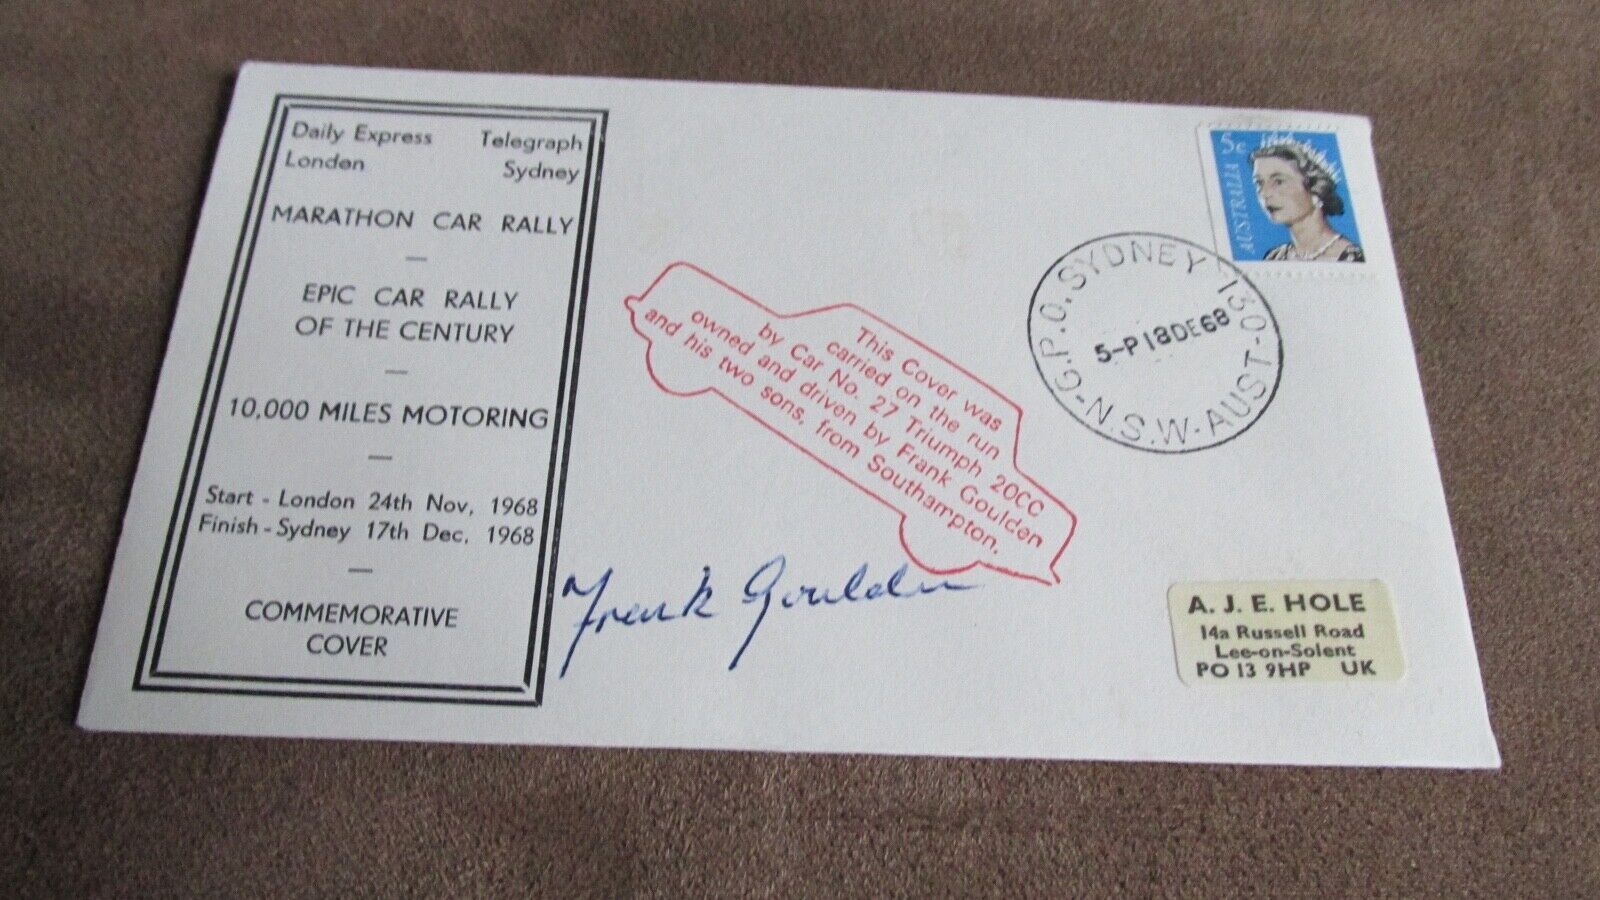 Daily Express Telegraph
London Sydney
MARATHON CAR RALLY
—
EPIC CAR RALLY
OF THE CENTURY
—
10,000 MILES MOTORING
—
Start - London 24th Nov, 1968
Finish - Sydney 17th Dec, 1968
—
COMMEMORATIVE
COVER
This Cover was
carried on the run
by Car No. 27 Triumph 20CC
owned and driven by Frank Goulden
and his two sons, from Southampton.
Frank Goulden
5c
AUSTRALIA
G.P.O. SYDNEY 130
N.S.W-AUST-
5-P18DE68
A. J. E. HOLE
14a Russell Road
Lee-on-Solent
PO 13 9HP UK